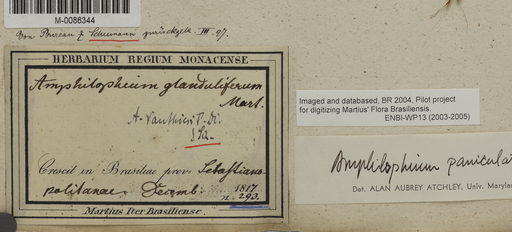 M-0086344
Don Bureau & Schumann zurückgek. III. 97.
HERBARIUM REGIUM MONACENSE.
Amphilophium glanduliferum
Mart.
A. Vauthieri P. Dc.
Crescit in Brasiliae prov. Sebastiano-
politanae Decemb. 1817
n. 293.
Martius Iter Brasiliense.
Imaged and databased, BR 2004, Pilot project
for digitizing Martius' Flora Brasiliensis.
ENBI-WP13 (2003-2005)
Amphilophium panicula
Det. ALAN AUBREY ATCHLEY, Univ. Maryland